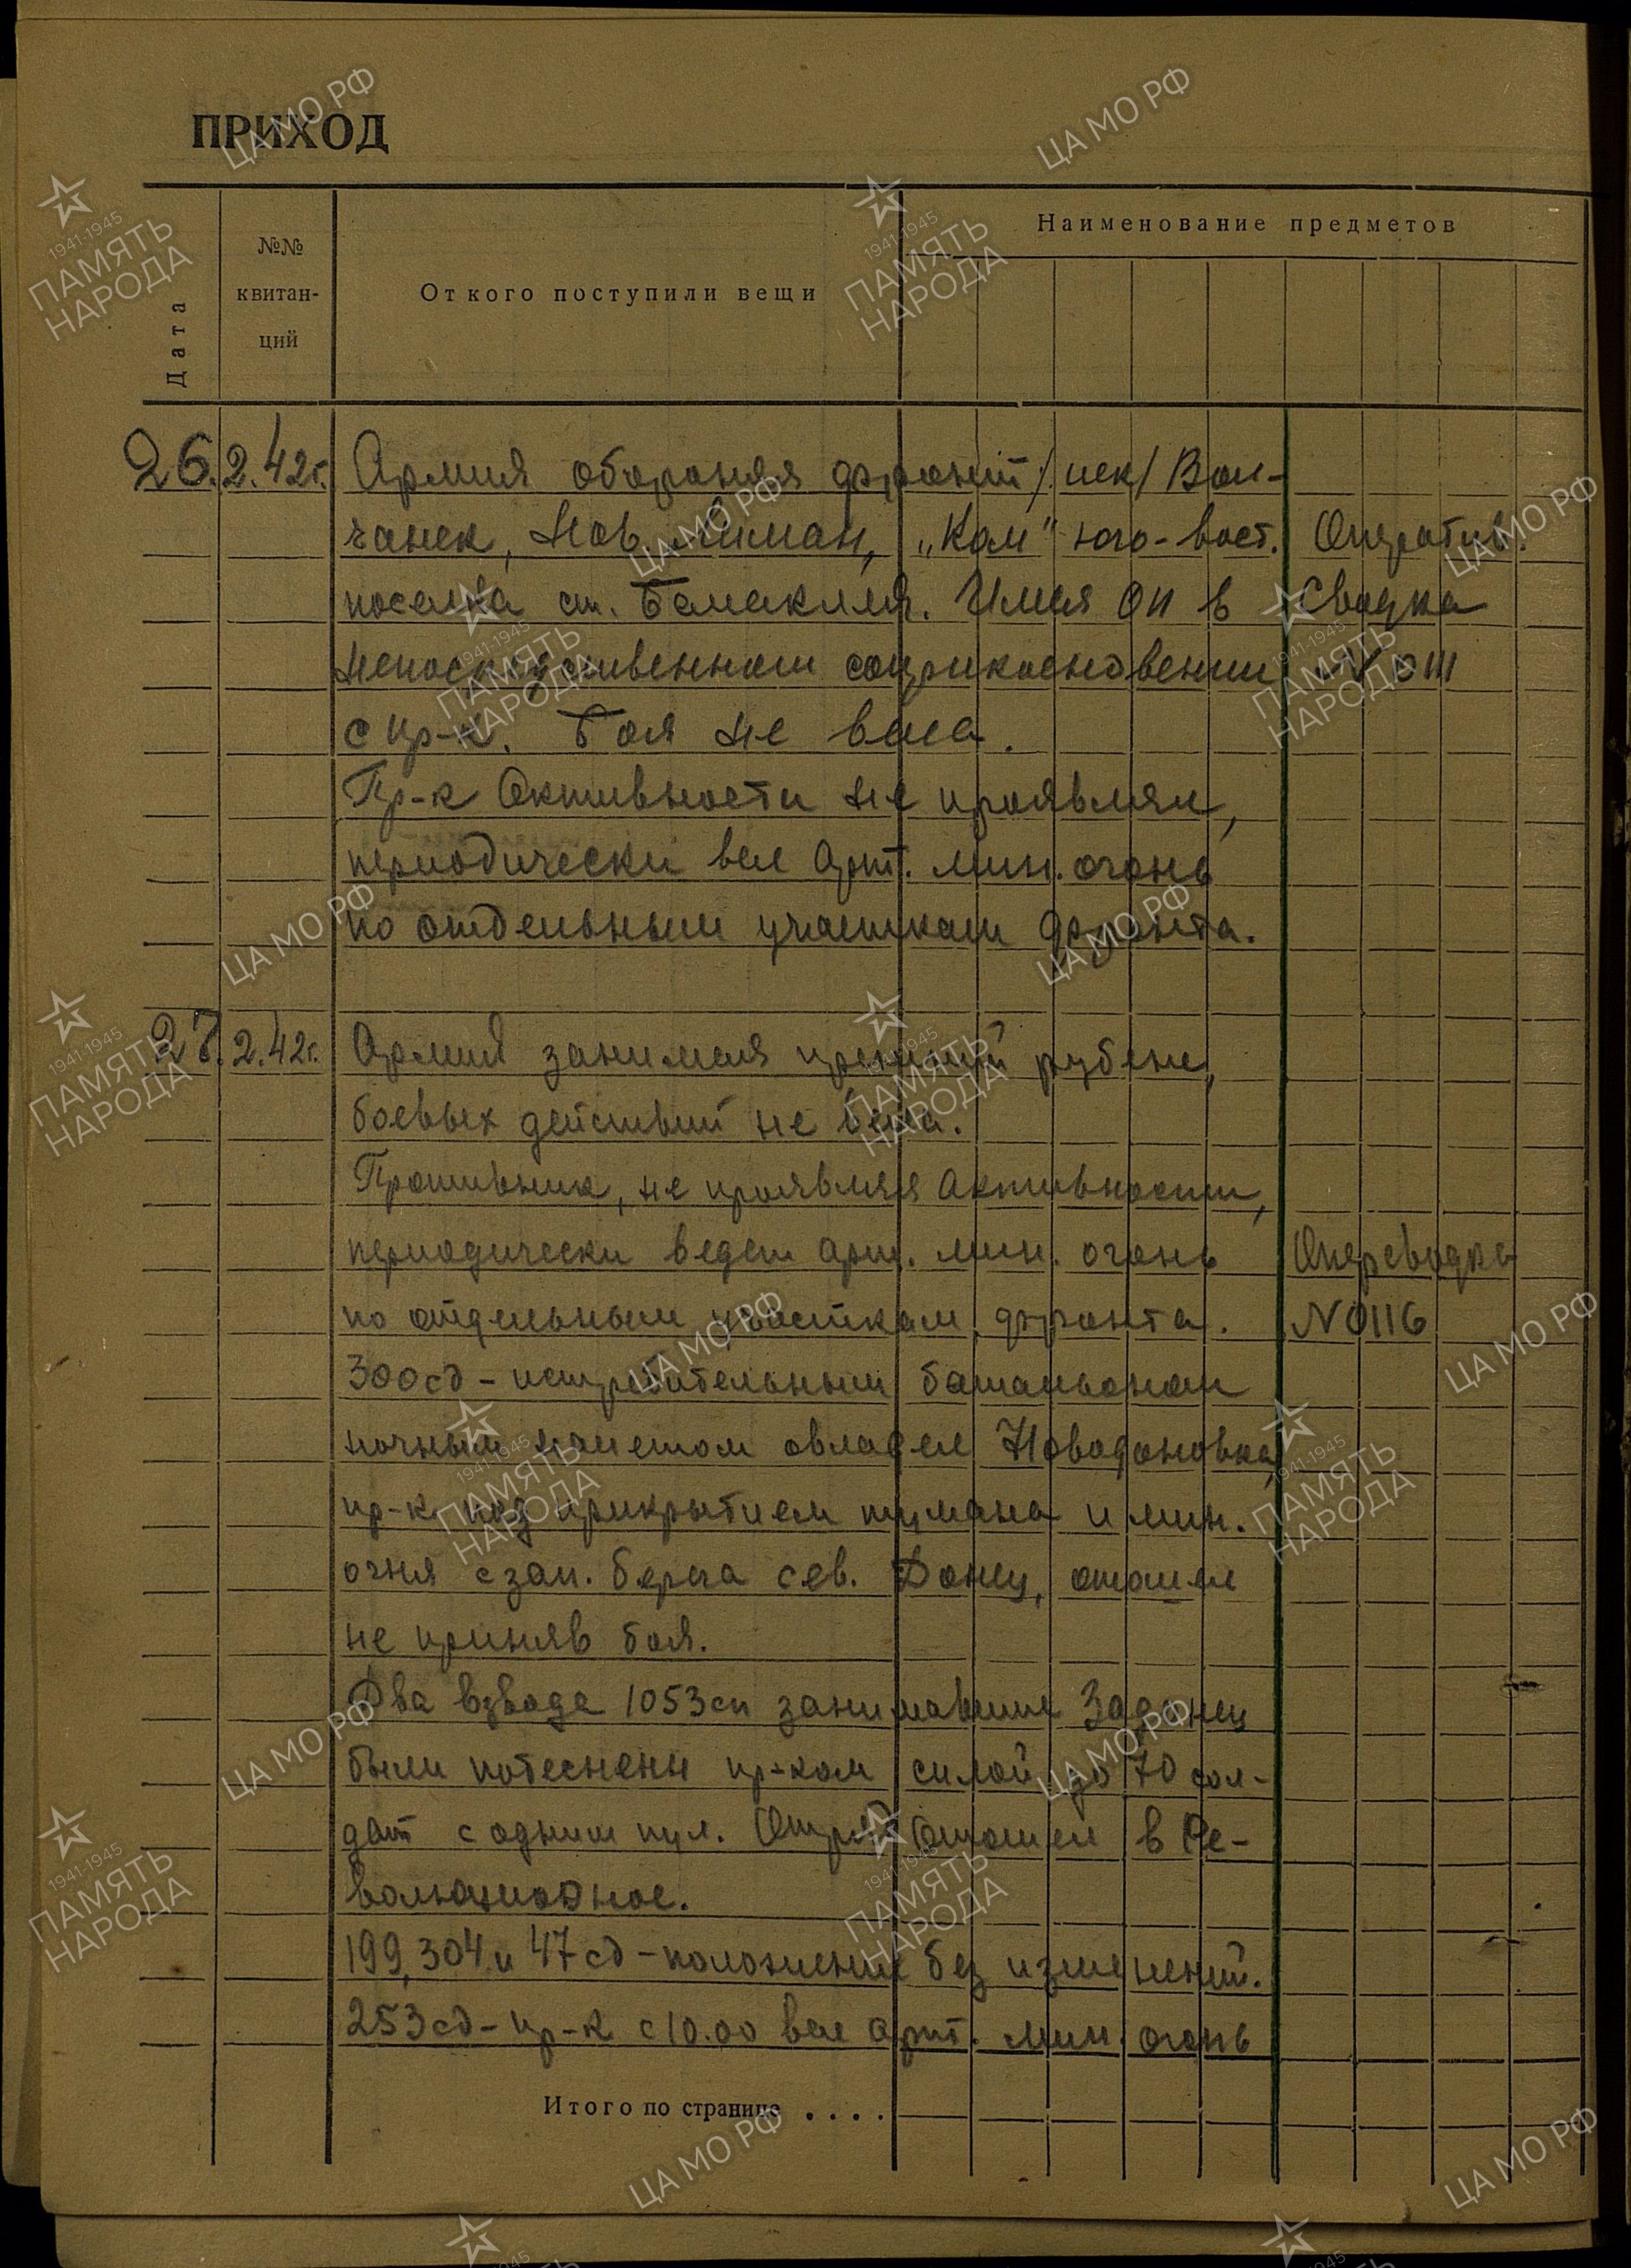 ПРИХОД
Дата
№№ квитан-ций
От кого поступили вещи
Наименование предметов
26.2.42г. Армия обороняя фронт /иск/ Вол-
чанск, Нов. Лиман, „Ком" юго-вост. Оператив.
поселка ст. Балаклея. Имея ОП в Сводка
непосредственном соприкосновении N 0111
с пр-к. Боя не вела.
Пр-к Активности не проявлял,
периодически вел Арт. мин. огонь
по отдельным участкам фронта.
27.2.42г. Армия занимая прежний рубеж,
боевых действий не вела.
Противник, не проявляя активности,
периодически ведет арт. мин. огонь Оперсводка
по отдельным участкам фронта. N 0116
300 сд - истребительным батальоном
ночным налетом овладел Новодоновка,
пр-к под прикрытием тумана и мин.
огня с зап. берега сев. Донец, отошел
не приняв боя.
Два взвода 1053 сп занимавшие Задонец
были потеснены пр-ком силой до 70 сол-
дат с одним пул. Отряд отошел в Ре-
волюционное.
199, 304 и 47 сд - положение без изменений.
253 сд - пр-к с 10.00 вел арт. мин. огонь
Итого по странице . . . .
ЦА МО РФ
1941-1945
ПАМЯТЬ
НАРОДА